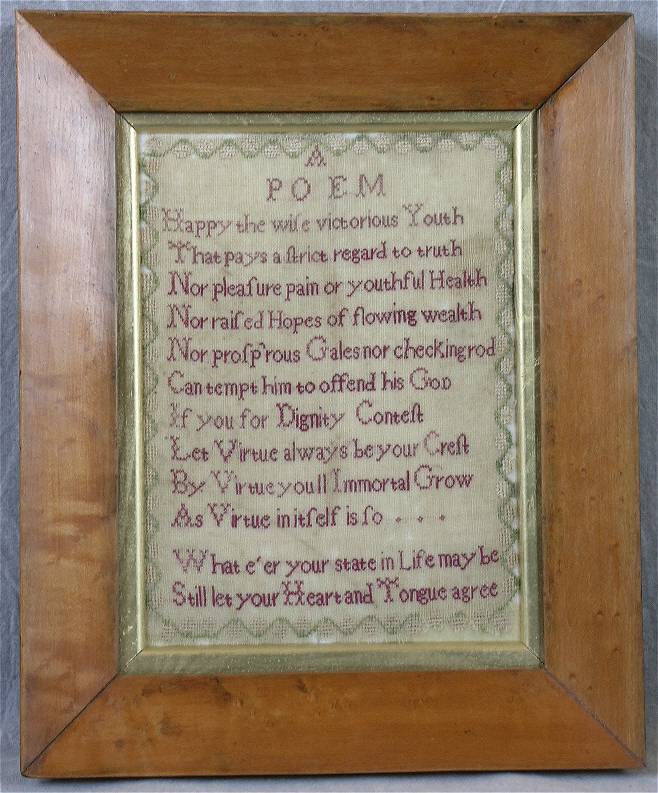 A
POEM
Happy the wiſe victorious Youth
That pays a ſtrict regard to truth
Nor pleaſure pain or youthful Health
Nor raiſed Hopes of flowing wealth
Nor proſp'rous Gales nor checking rod
Can tempt him to offend his GOD
If you for Dignity Conteſt
Let Virtue always be your Creſt
By Virtue youll Immortal Grow
As Virtue in itſelf is ſo . . .
What e'er your state in Life may be
Still let your Heart and Tongue agree